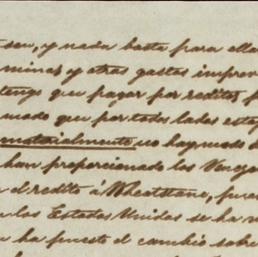 seu, y nada basta para ella
minas y otros gastos imprev
tengo que pagar por reditos p
mado que por todos lados estoy
materialmente no hay modo d
han proporcionado los Venego
el redito á Wheatstone, pues
los Estados Unidos se ha v
ha puesto el cambio sobre